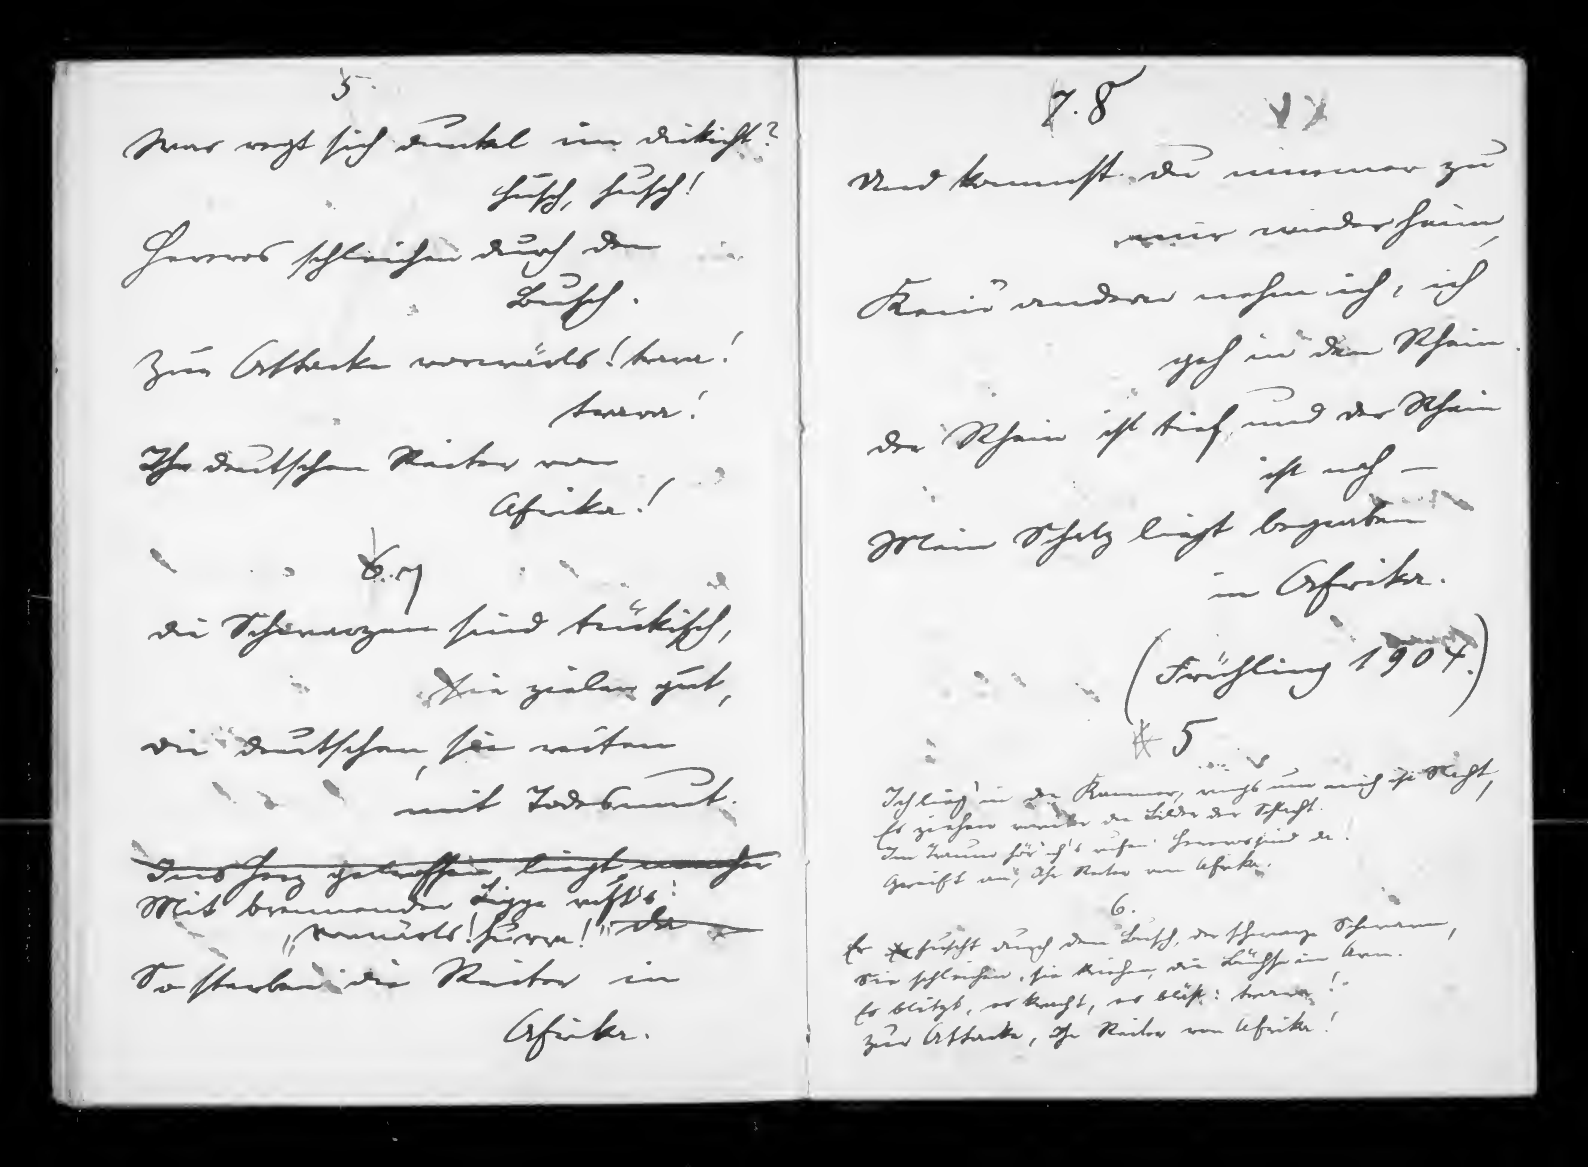 5.
Was regt sich dunkel im Dickicht?
husch, husch!
Hereros schleichen durch den
Busch.
Zur Attacke vorwärts! trara!
trara!
Ihr deutschen Reiter von
Afrika!
6. 7
Die Schwarzen sind tückisch,
sie zielen gut,
Die Deutschen, sie reiten
mit Todesmut.
Ins Herz getroffen, liegt mancher
Mit brennender Lippe ruft's:
„Vorwärts! hurra!" da
So sterben die Reiter in
Afrika.
7. 8
Und kommst du nimmer zu
mir wieder heim,
Kein' andern nehm ich, ich
geh in den Rhein.
Der Rhein ist tief, und der Rhein
ist nah —
Mein Schatz liegt begraben
in Afrika.
(Frühling 1904.)
5
Ich lieg' in der Kammer, rings um mich ist Nacht,
Es ziehen vorüber die Bilder der Schlacht.
Im Traum hör' ich's rufen: Hereros sind da!
Greift an, Ihr Reiter von Afrika.
6.
Es huscht durch den Busch, der schwarze Schwarm,
Sie schleichen, sie kriechen, die Büchse im Arm.
Es blitzt, es kracht, es bläst: trara!
Zur Attacke, Ihr Reiter von Afrika!